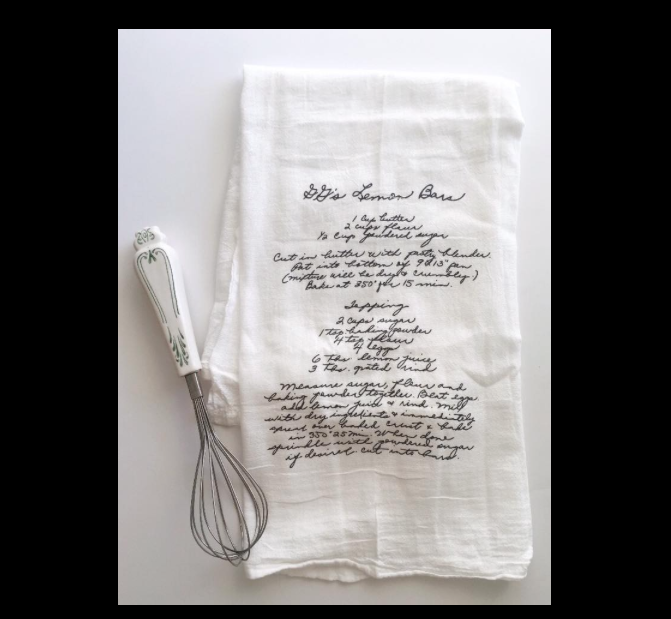 GG's Lemon Bars
1 Cup butter
2 cups flour
½ Cup powdered sugar
Cut in butter with pastry blender.
Pat into bottom of 9x13" pan
(mixture will be dry & crumbly.)
Bake at 350° for 15 min.
Topping
2 cups sugar
1 tsp baking powder
4 tsp flour
4 eggs
6 tbs lemon juice
3 tbs. grated rind
Measure sugar, flour and
baking powder together. Beat eggs
add lemon juice & rind. Mix
with dry ingredients & immediately
spread over baked crust & bake
in 350° 25 min. When done
sprinkle with powdered sugar
if desired cut into bars.